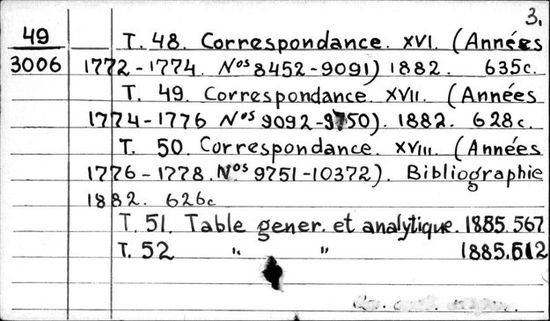 3.
49
3006
T. 48. Correspondance. XVI. (Années
1772-1774. Nos 8452-9091) 1882. 635c.
T. 49. Correspondance. XVII. (Années
1774-1776 Nos 9092-9750). 1882. 628c.
T. 50. Correspondance. XVIII. (Années
1776-1778. Nos 9751-10372). Bibliographie
1882. 626c
T. 51. Table gener. et analytique. 1885. 567
T. 52 " " 1885. 612